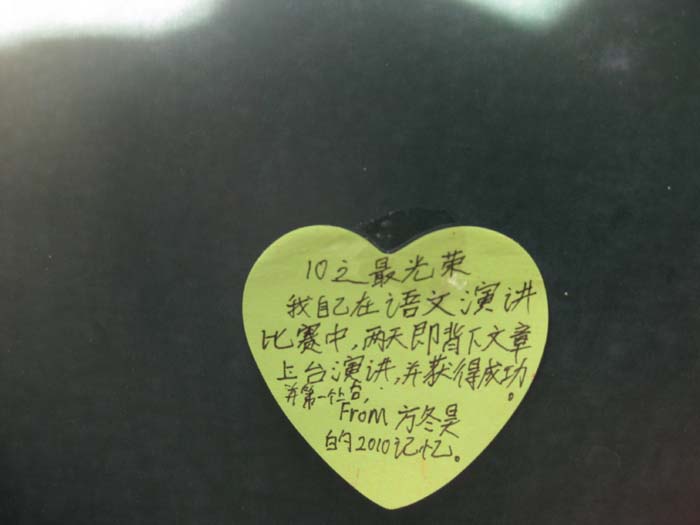 10之最光荣
我自己在语文演讲
比赛中,两天即背下文章
上台演讲,并获得成功。
并第一个上台,
From 方冬昊
的2010记忆。